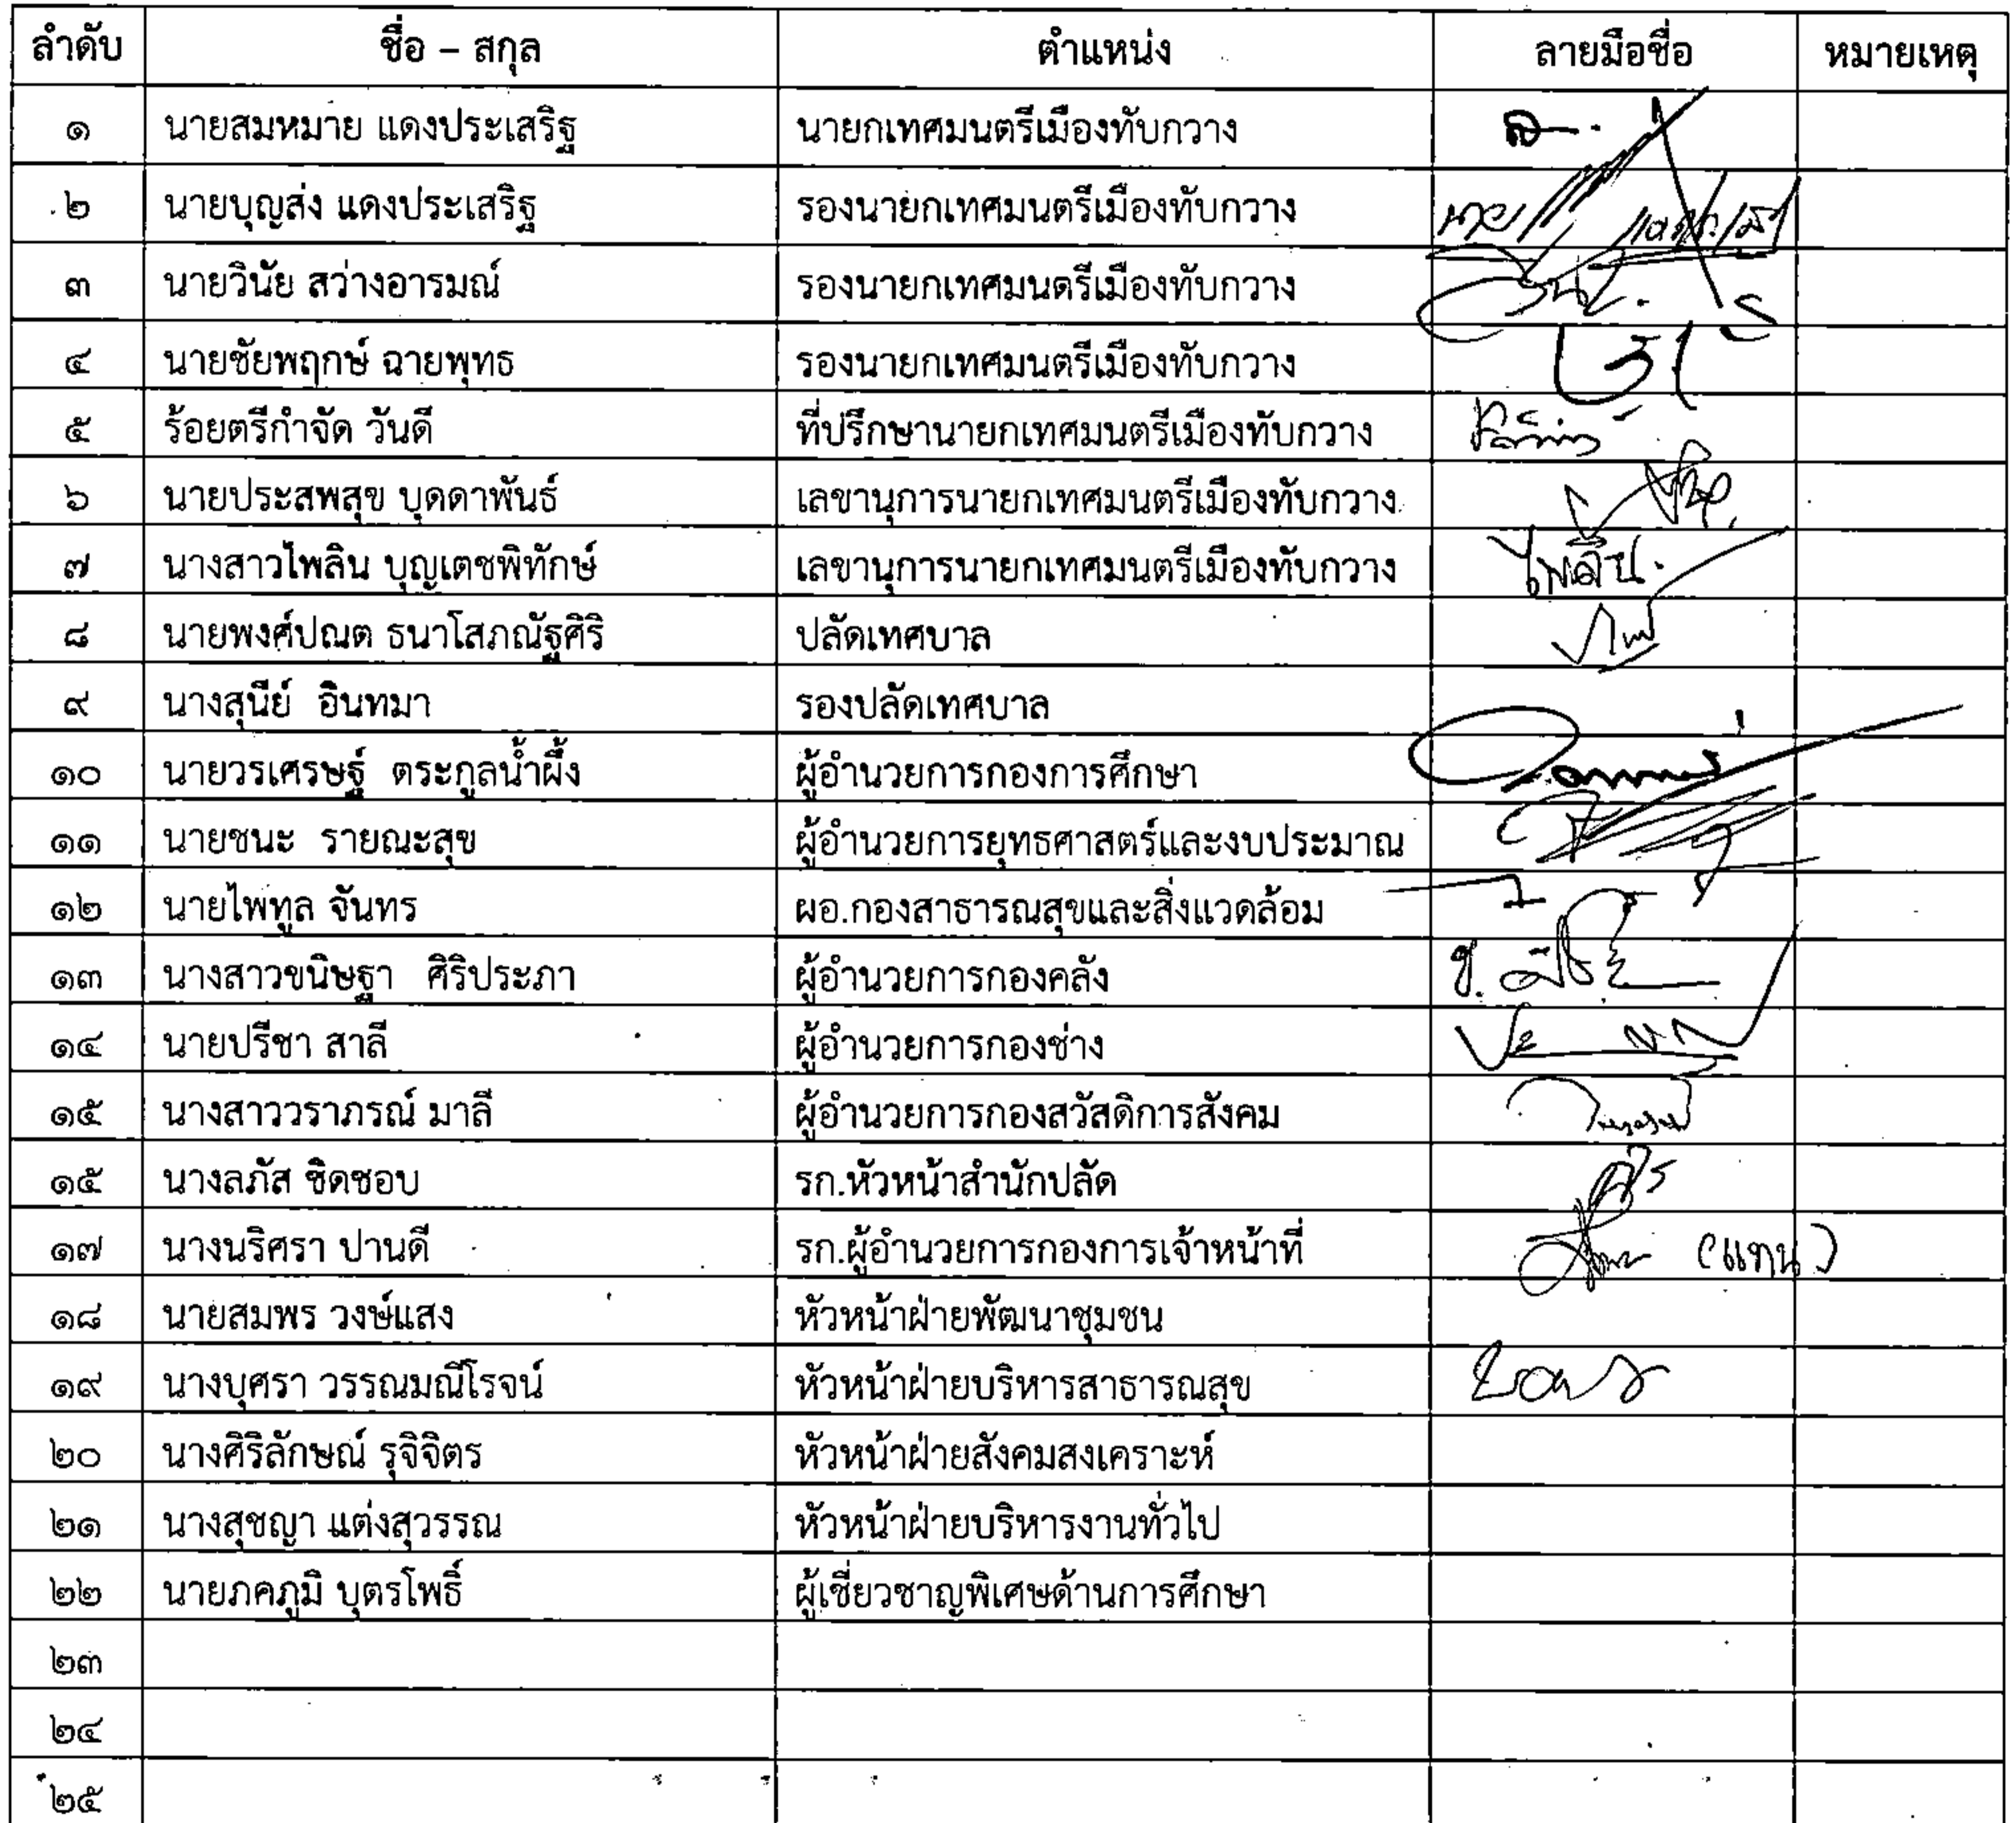 ลำดับ ชื่อ – สกุล ตำแหน่ง ลายมือชื่อ หมายเหตุ
๑ นายสมหมาย แดงประเสริฐ นายกเทศมนตรีเมืองทับกวาง
๒ นายบุญส่ง แดงประเสริฐ รองนายกเทศมนตรีเมืองทับกวาง
๓ นายวินัย สว่างอารมณ์ รองนายกเทศมนตรีเมืองทับกวาง
๔ นายชัยพฤกษ์ ฉายพุทธ รองนายกเทศมนตรีเมืองทับกวาง
๕ ร้อยตรีกำจัด วันดี ที่ปรึกษานายกเทศมนตรีเมืองทับกวาง
๖ นายประสพสุข บุดดาพันธ์ เลขานุการนายกเทศมนตรีเมืองทับกวาง
๗ นางสาวไพลิน บุญเตชพิทักษ์ เลขานุการนายกเทศมนตรีเมืองทับกวาง ไพลิน
๘ นายพงศ์ปณต ธนาโสภณัฐศิริ ปลัดเทศบาล
๙ นางสุนีย์ อินทมา รองปลัดเทศบาล
๑๐ นายวรเศรษฐ์ ตระกูลน้ำผึ้ง ผู้อำนวยการกองการศึกษา
๑๑ นายชนะ รายณะสุข ผู้อำนวยการยุทธศาสตร์และงบประมาณ
๑๒ นายไพทูล จันทร ผอ.กองสาธารณสุขและสิ่งแวดล้อม
๑๓ นางสาวขนิษฐา ศิริประภา ผู้อำนวยการกองคลัง
๑๔ นายปรีชา สาลี ผู้อำนวยการกองช่าง
๑๕ นางสาววราภรณ์ มาลี ผู้อำนวยการกองสวัสดิการสังคม
๑๕ นางลภัส ชิดชอบ รก.หัวหน้าสำนักปลัด
๑๗ นางนริศรา ปานดี รก.ผู้อำนวยการกองการเจ้าหน้าที่ (แทน)
๑๘ นายสมพร วงษ์แสง หัวหน้าฝ่ายพัฒนาชุมชน
๑๙ นางบุศรา วรรณมณีโรจน์ หัวหน้าฝ่ายบริหารสาธารณสุข
๒๐ นางศิริลักษณ์ รุจิจิตร หัวหน้าฝ่ายสังคมสงเคราะห์
๒๑ นางสุชญา แต่งสุวรรณ หัวหน้าฝ่ายบริหารงานทั่วไป
๒๒ นายภคภูมิ บุตรโพธิ์ ผู้เชี่ยวชาญพิเศษด้านการศึกษา
๒๓
๒๔
๒๕